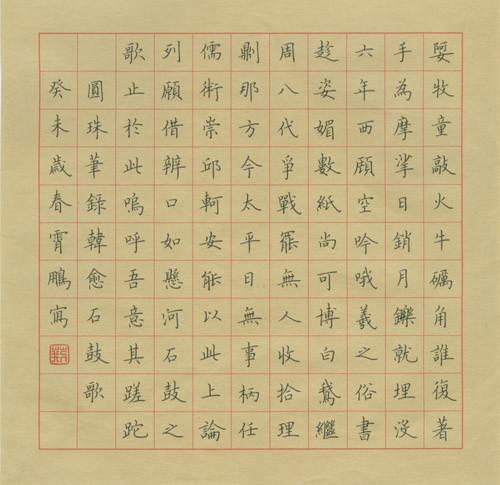 娿牧童敲火牛礪角誰復著
手為摩挲日銷月鑠就埋沒
六年西顧空吟哦羲之俗書
趂姿媚數紙尚可博白鵞繼
周八代爭戰罷無人收拾理
則那方今太平日無事柄任
儒術崇邱軻安能以此上論
列願借辨口如懸河石鼓之
歌止於此嗚呼吾意其蹉跎
圓珠筆錄韓愈石鼓歌
癸未歲春霄鵬寫